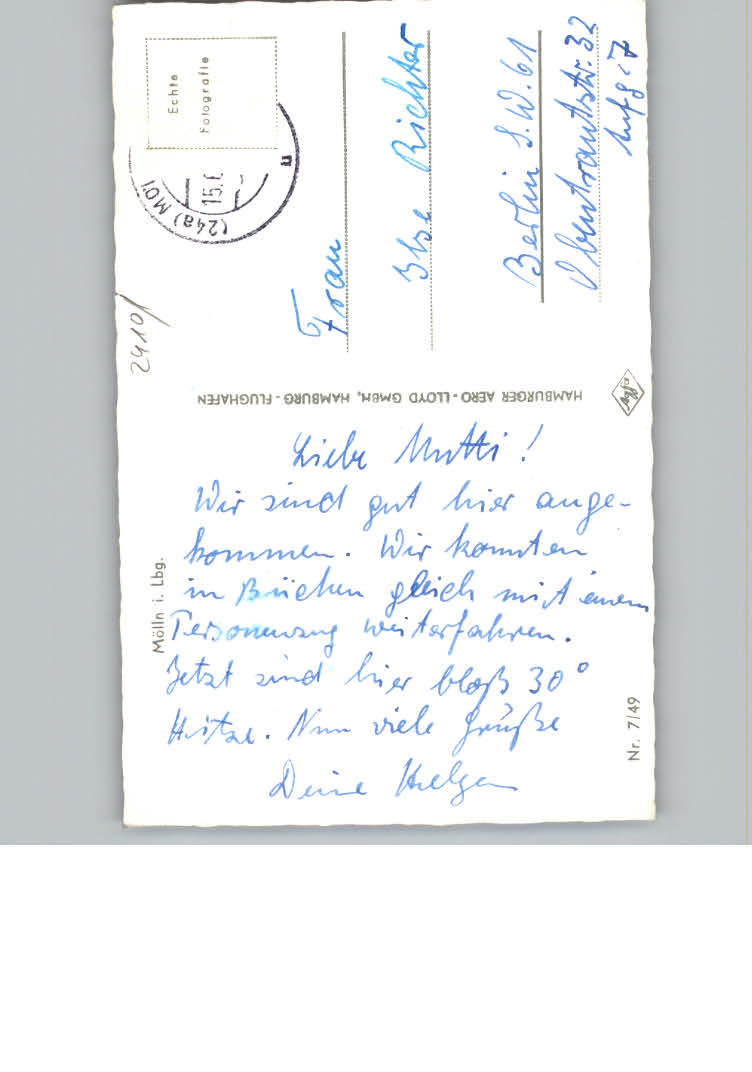 Echte
Fotografie
(24a) MÖL
15.
Frau
Ilse Richter
Berlin S.W. 61
Obentrautstr. 32
Aufg. 7
2410/
HAMBURGER AERO-LLOYD GMBH, HAMBURG-FLUGHAFEN
Mölln i. Lbg.
Nr. 7/49
Liebe Mutti!
Wir sind gut hier ange-
kommen. Wir konnten
in Büchen gleich mit einem
Personenzug weiterfahren.
Jetzt sind hier bloß 30°
Hitze. Nun viele Grüße
Deine Helga